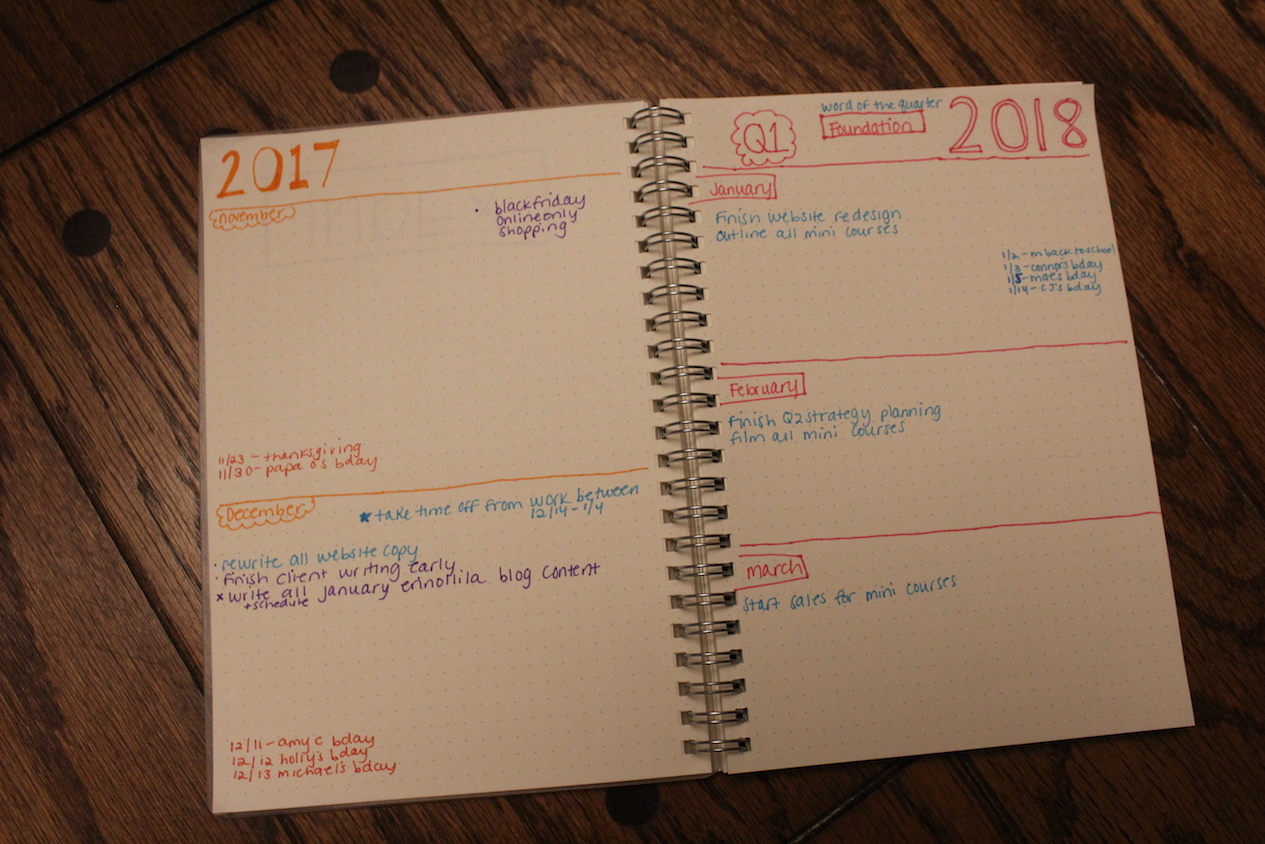 2017
november
• blackfriday
online only
shopping
11/23 - thanksgiving
11/30 - papa o's bday
December
★ take time off from work between
12/14 - 1/4
• rewrite all website copy
• finish client writing early
x write all january erinomila blog content
+ schedule
12/11 - amy c bday
12/12 holly's bday
12/13 michael's bday
Q1
word of the quarter
Foundation
2018
January
finish website redesign
outline all mini courses
1/2 - m back to school
1/3 - connors bday
1/5 - mae's bday
1/14 - CJ's bday
February
finish Q2 strategy planning
film all mini courses
march
start sales for mini courses